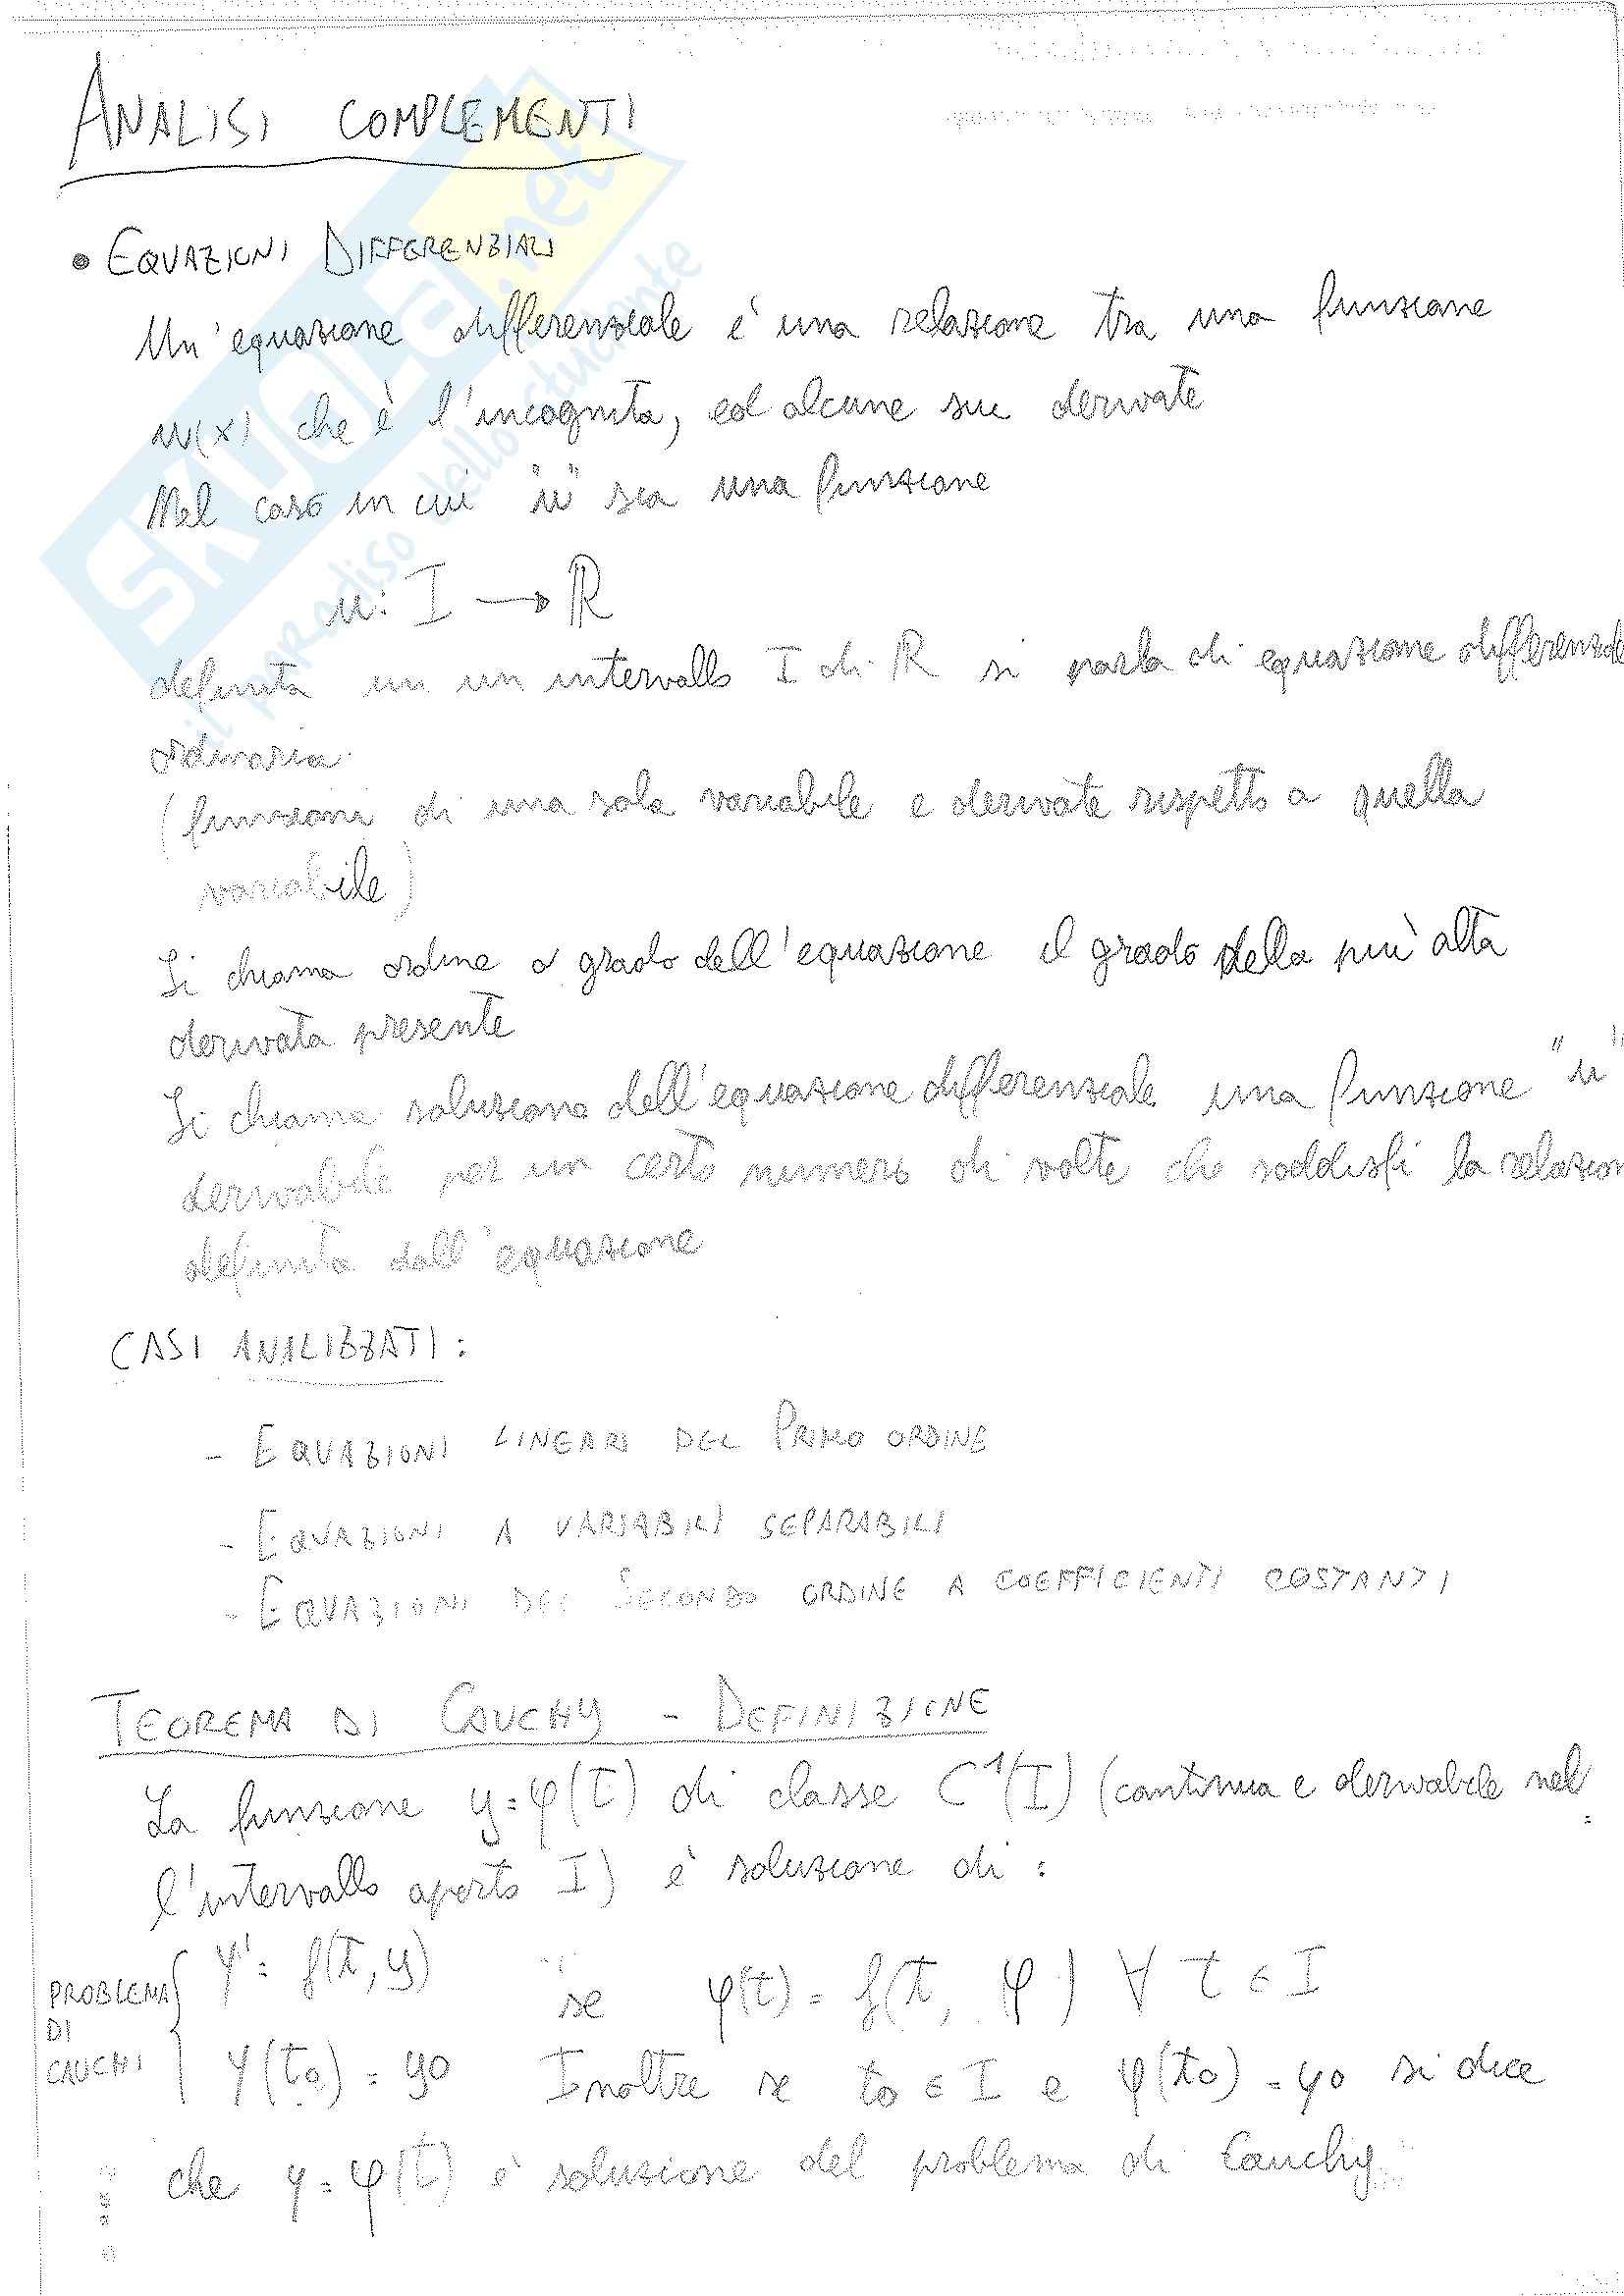 ANALISI COMPLEMENTI
• EQUAZIONI DIFFERENZIALI
Un'equazione differenziale è una relazione tra una funzione
u(x) che è l'incognita, ed alcune sue derivate
Nel caso in cui "u" sia una funzione
u: I → ℝ
definita un un intervallo I di ℝ si parla di equazione differenziale
ordinaria.
(funzioni di una sola variabile e derivate rispetto a quella
variabile)
Si chiama ordine o grado dell'equazione il grado della più alta
derivata presente
Si chiama soluzione dell'equazione differenziale una funzione "u"
derivabile per un certo numero di volte che soddisfi la relazion
definita dall'equazione
CASI ANALIZZATI:
- EQUAZIONI LINEARI DEL PRIMO ORDINE
- EQUAZIONI A VARIABILI SEPARABILI
- EQUAZIONI DEL SECONDO ORDINE A COEFFICIENTI COSTANTI
TEOREMA DI CAUCHY - DEFINIZIONE
La funzione y=φ(t) di classe C¹(I) (continua e derivabile nel
l'intervallo aperto I) è soluzione di:
PROBLEMA DI CAUCHI { y' = f(t,y) se φ(t) = f(t, φ) ∀ t ∈ I
y(t0) = y0 Inoltre se t0 ∈ I e φ(t0) = y0 si dice
che y=φ(t) è soluzione del problema di Cauchy
SKUOLA.net
il paradiso dello studente